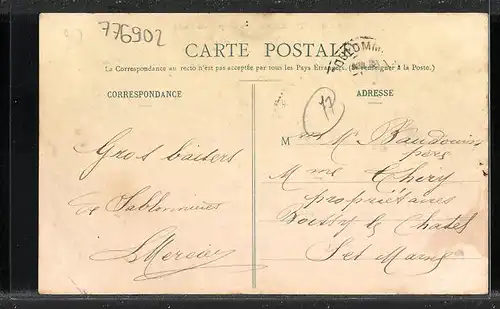 776902
CARTE POSTALE
COULOMM
La Correspondance au recto n'est pas acceptée par tous les Pays Etrangers. (Se renseigner à la Poste.)
CORRESPONDANCE
ADRESSE
17
Gros baisers
de Sablonnières
L Mercier
M
Mr Baudouin
père
Mme Thiry
propriétaires
Boissy le Chatel
Set Marne